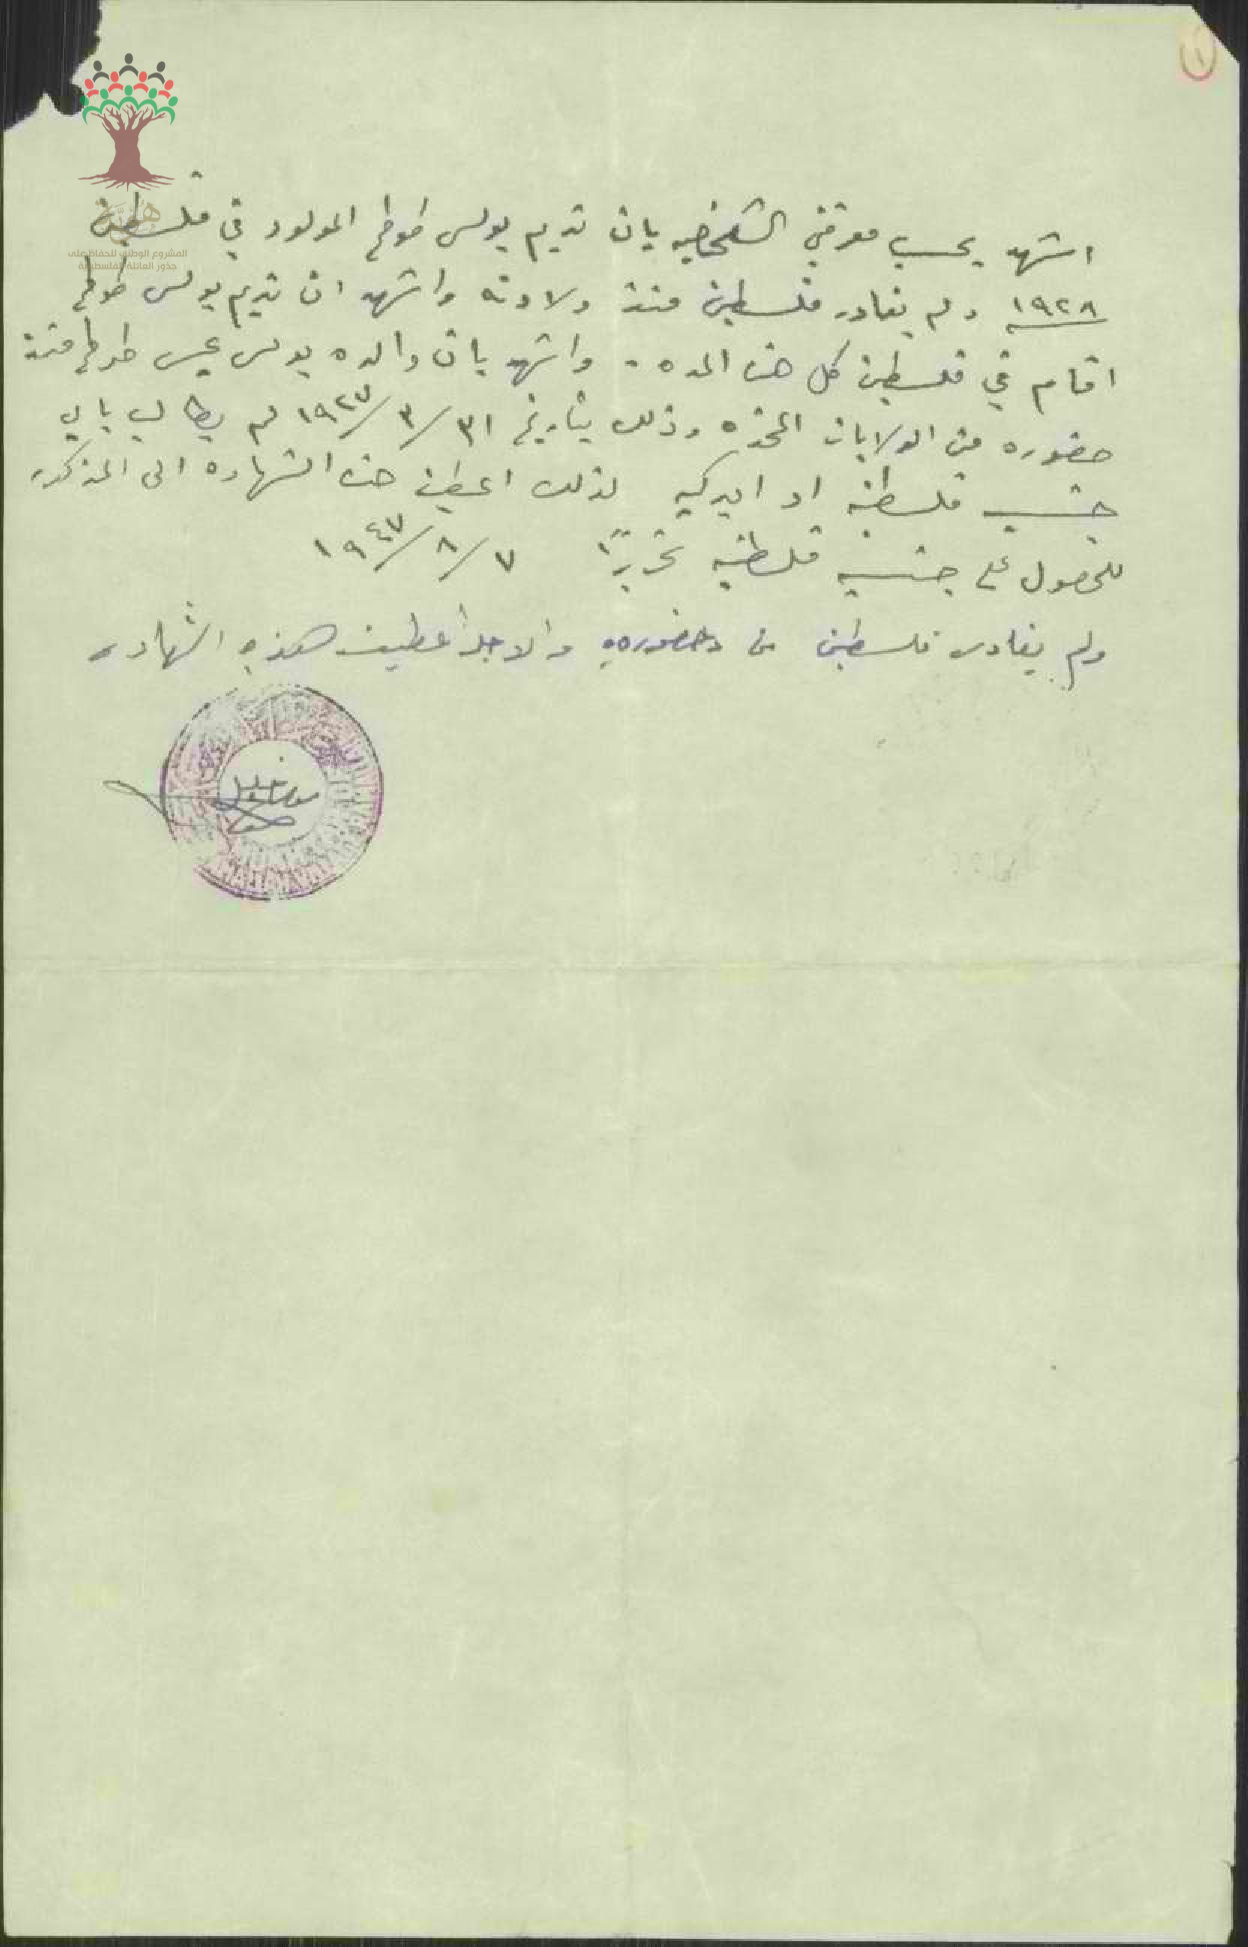 ١
هُوِيَّة
المشروع الوطني للحفاظ على
جذور العائلة الفلسطينية
اشهد بحسب معرفتي الشخصيه بان نديم بولس طوطح المولود في فلسطين
١٩٢٨ ولم يغادر فلسطين منذ ولادته واشهد ان نديم بولس طوطح
اقام في فلسطين كل هذه المده . واشهد بان والده بولس عيسى طوطح منذ
حضوره من الولايات المتحده وذلك بتاريخ ٣١/٣/١٩٢٧ لم يطالب باي
جنسيه فلسطنيه او اميركيه لذلك اعطيت هذه الشهاده الى المذكور
للحصول على جنسيه فلسطنيه تحريرًا ٧/٨/١٩٤٧
ولم يغادر فلسطين من حضوره والاجله اعطيت هذه الشهاده